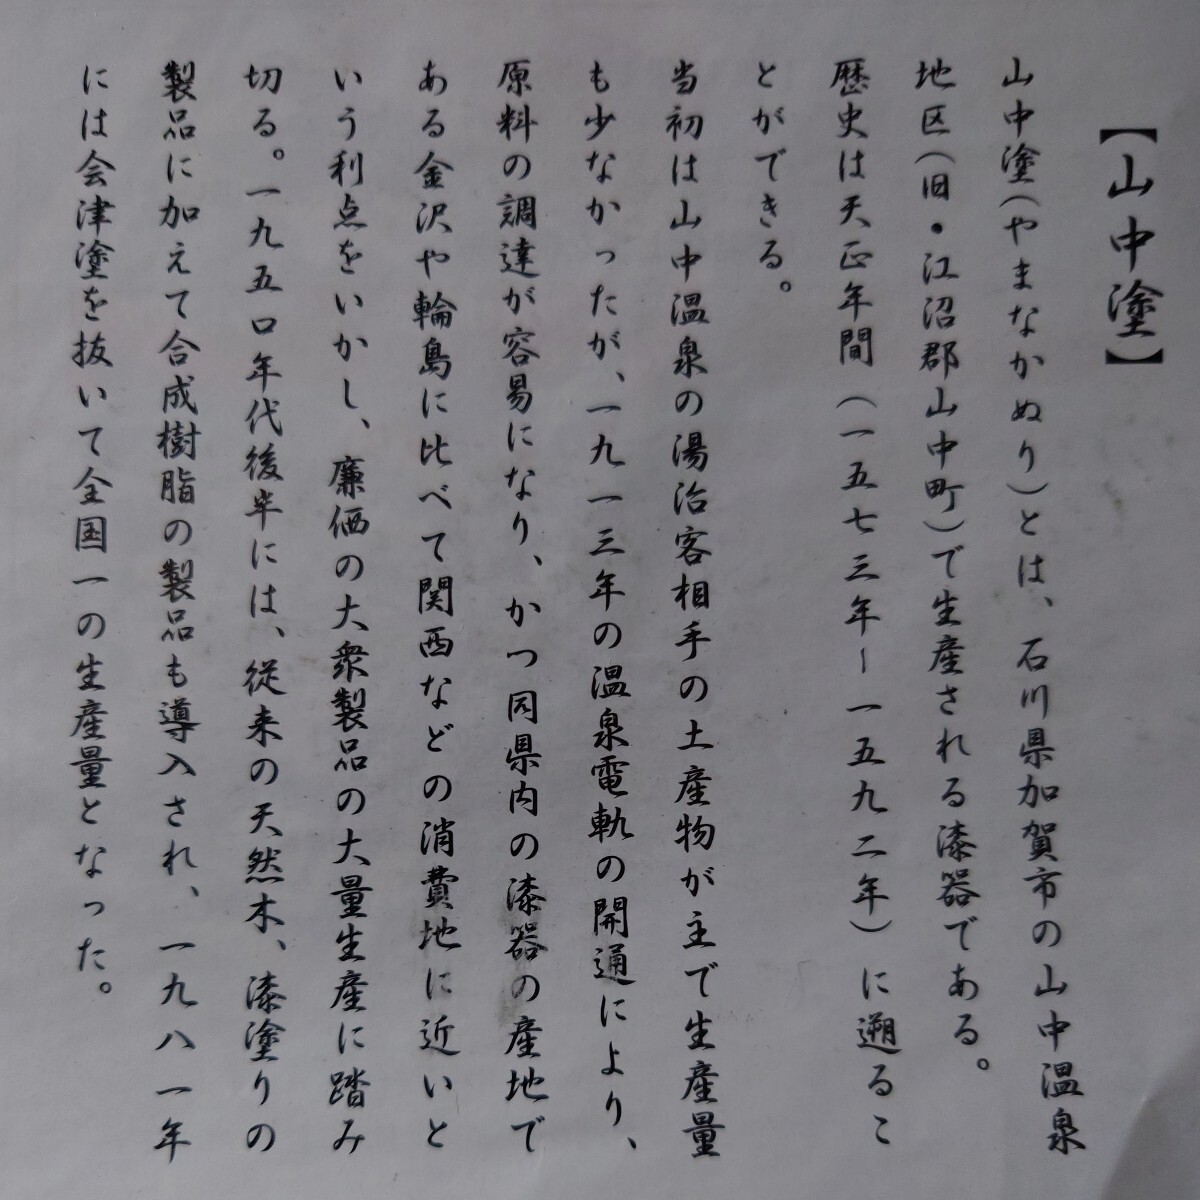 【山中塗】
山中塗(やまなかぬり)とは、石川県加賀市の山中温泉
地区(旧・江沼郡山中町)で生産される漆器である。
歴史は天正年間(一五七三年〜一五九二年)に遡るこ
とができる。
当初は山中温泉の湯治客相手の土産物が主で生産量
も少なかったが、一九一三年の温泉電軌の開通により、
原料の調達が容易になり、かつ同県内の漆器の産地で
ある金沢や輪島に比べて関西などの消費地に近いと
いう利点をいかし、廉価の大衆製品の大量生産に踏み
切る。一九五〇年代後半には、従来の天然木、漆塗りの
製品に加えて合成樹脂の製品も導入され、一九八一年
には会津塗を抜いて全国一の生産量となった。